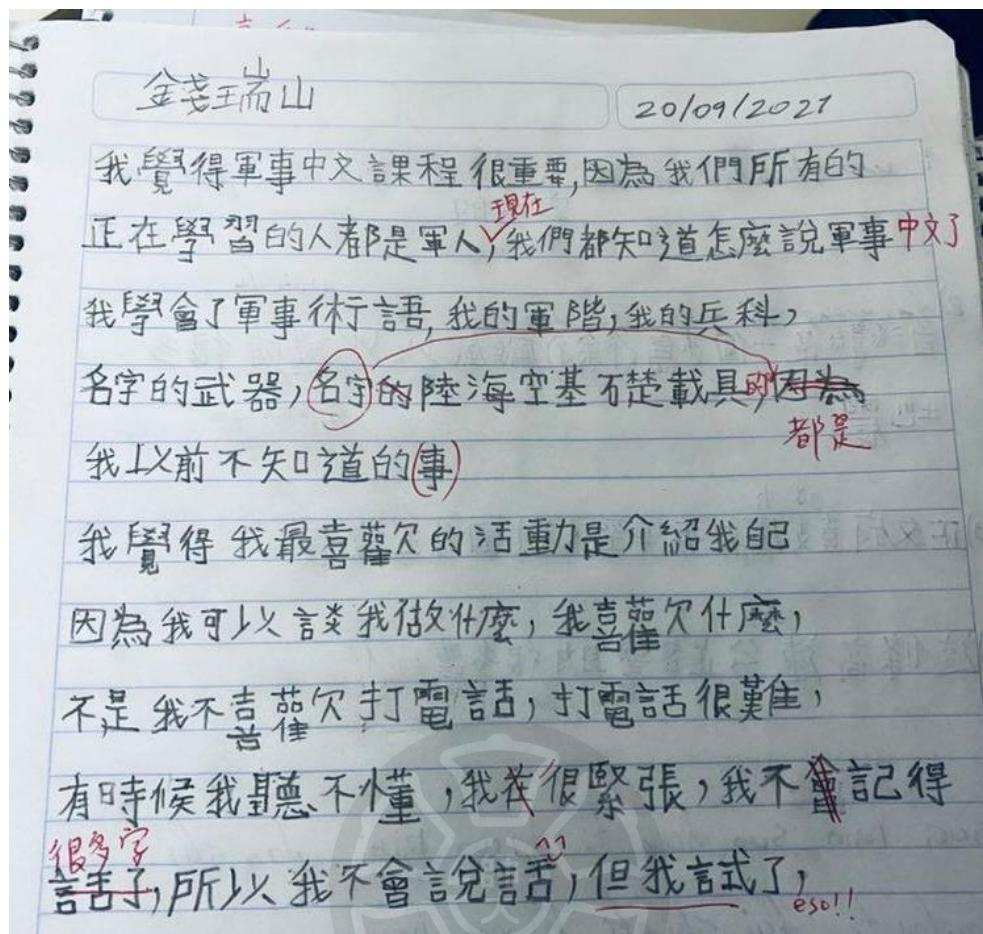 錢瑞山 20/09/2021
我覺得軍事中文課程很重要,因為我們所有的
現在
正在學習的人都是軍人,我們都知道怎麼說軍事中文了
我學會了軍事術語,我的軍階,我的兵科,
名字的武器,名字的陸海空基礎載具的,因為
都是
我以前不知道的(事)
我覺得我最喜歡的活動是介紹我自己
因為我可以談我做什麼,我喜歡什麼,
不是我不喜歡打電話,打電話很難,
有時候我聽不懂,我在很緊張,我不會記得
很多字
話了,所以我不會說話,但我試了,
eso!!